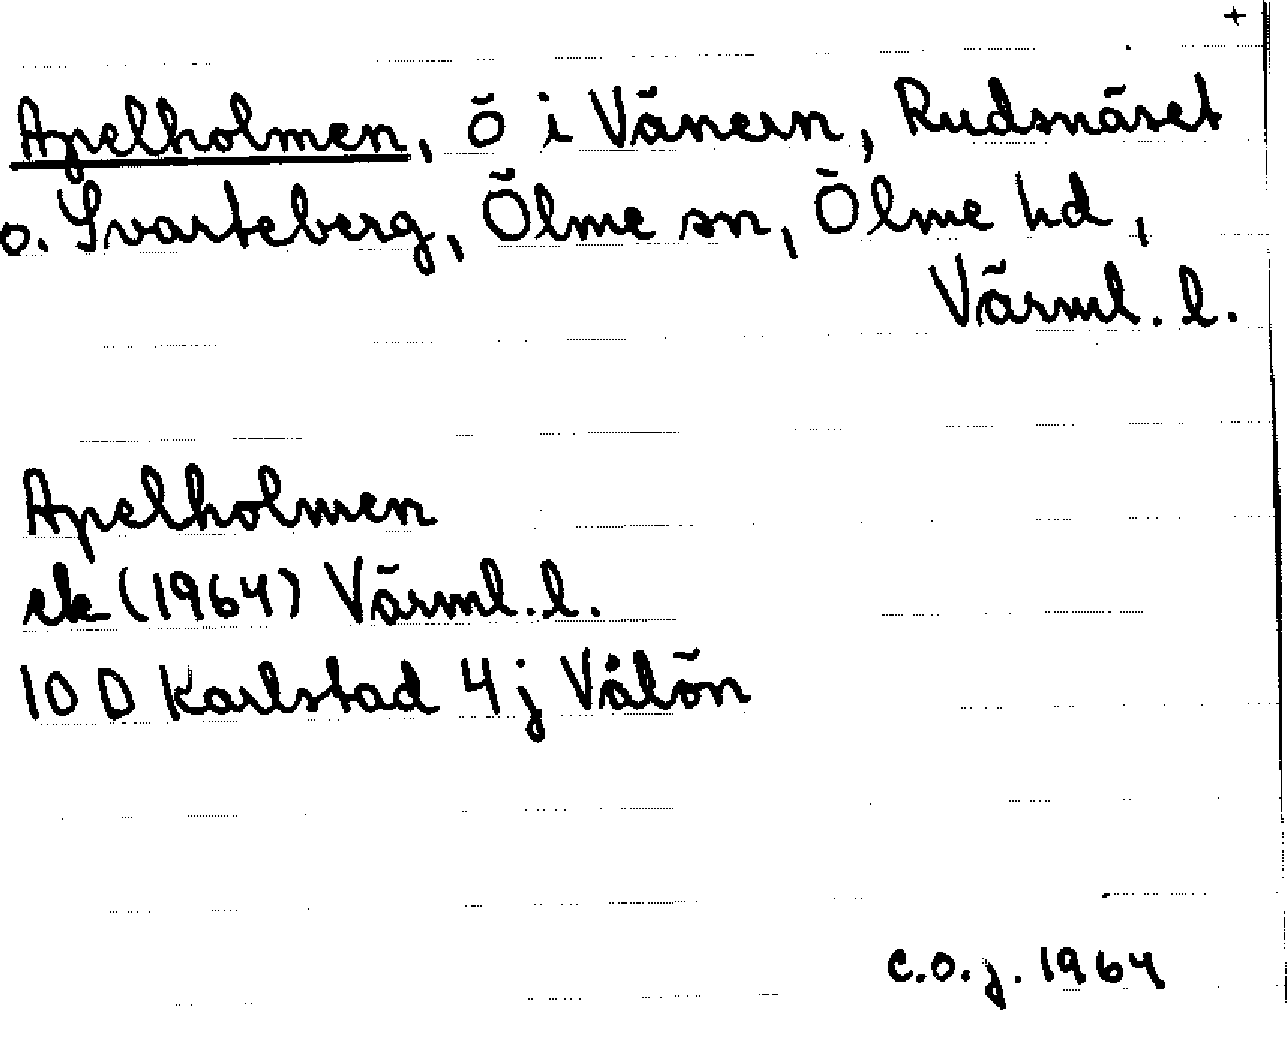 +
Apelholmen, ö i Vänern, Rudsnäset
o. Svarteberg, Ölme sn, Ölme hd,
Värml. l.
Apelholmen
ek (1964) Värml. l.
10 D Karlstad 4 j Vålön
C.O.J. 1964